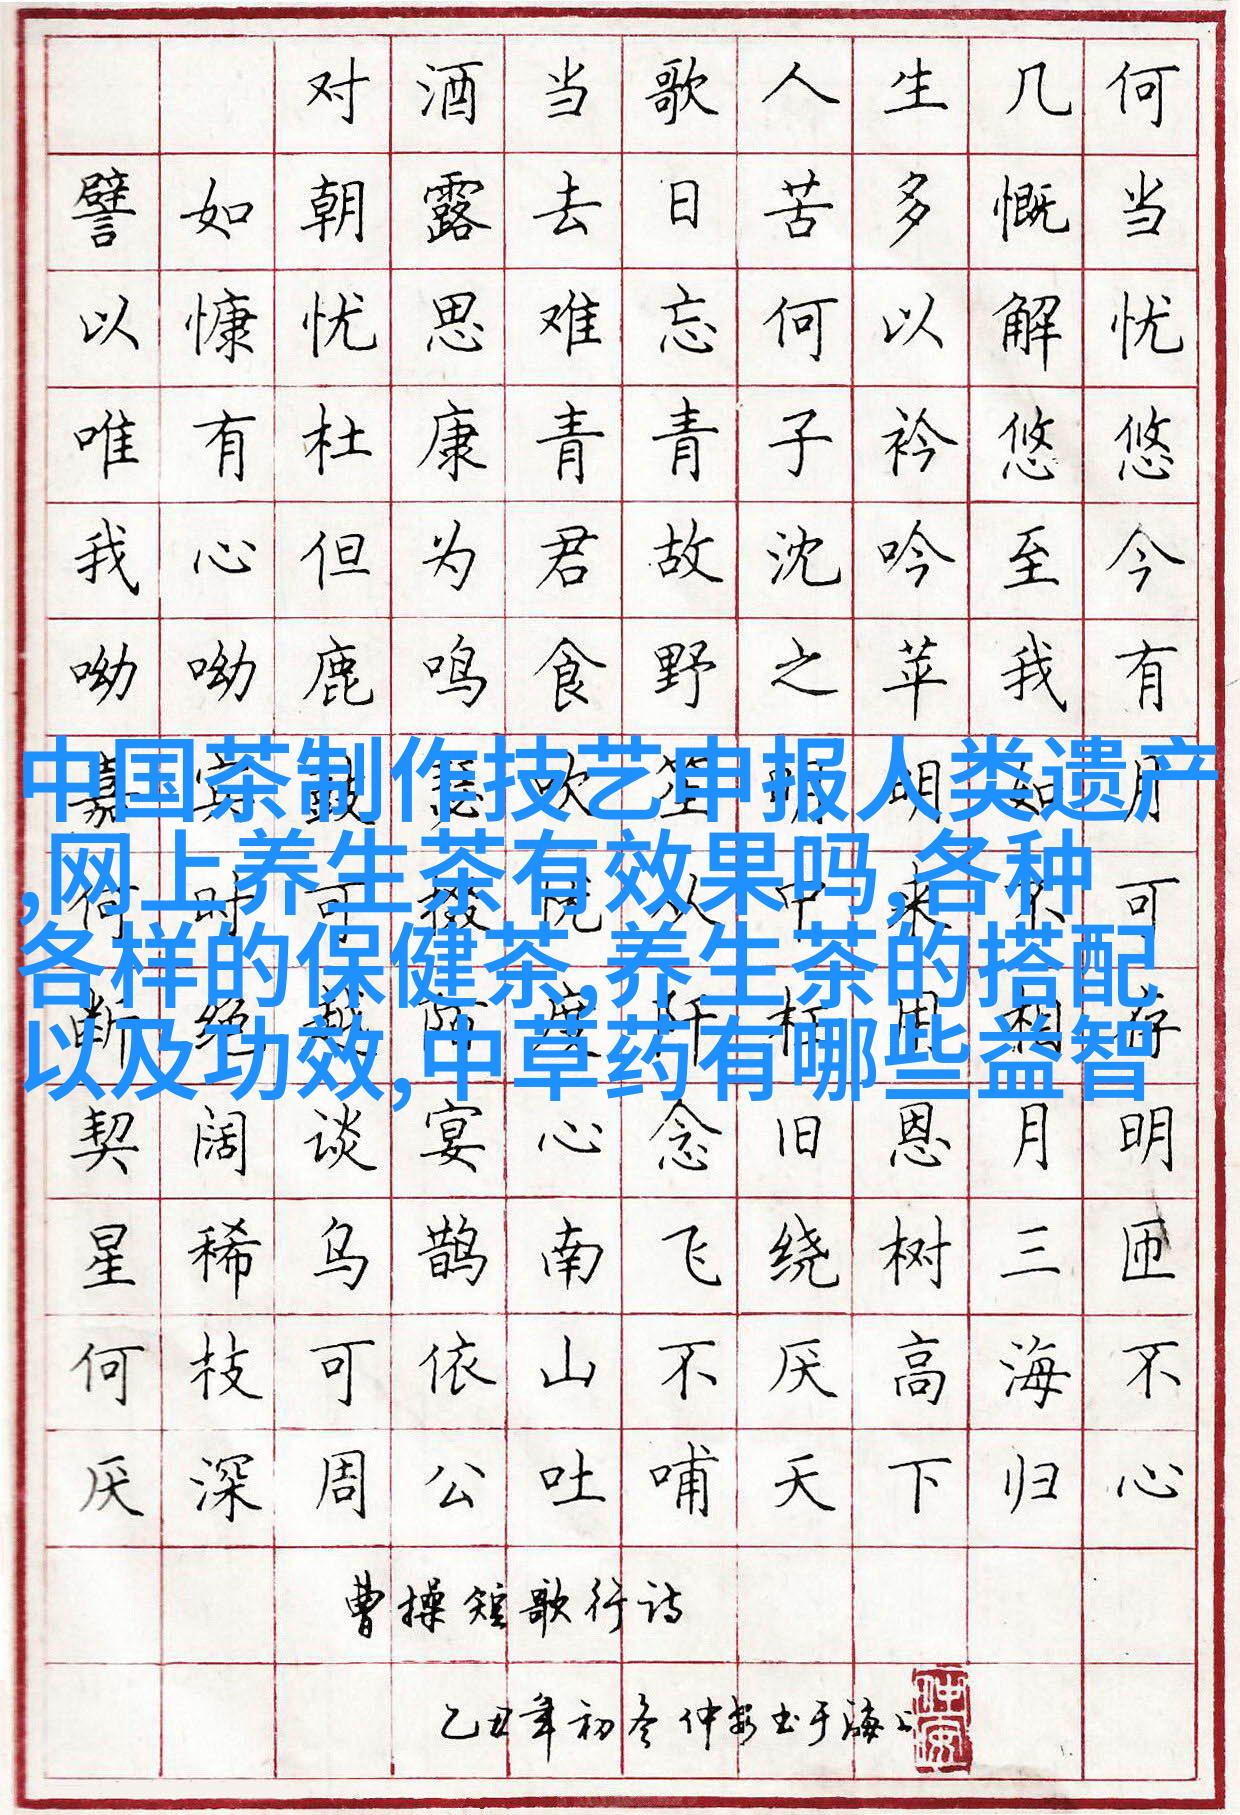 对酒当歌人生几何
譬如朝露去日苦多慨当
以慷忧思难忘何以解忧
唯有杜康青青子衿悠悠
我心但为君故沈吟至今
呦呦鹿鸣食野之苹我有
嘉宾鼓瑟吹笙明明如月
中国茶制作技艺申报人类遗产
,网上养生茶有效果吗,各种
何时可掇忧从中来不可
各样的保健茶,养生茶的搭配
断绝越陌度阡枉用相存
以及功效,中草药有哪些益智
契阔谈宴心念旧恩月明
星稀乌鹊南飞绕树三匝
何枝可依山不厌高海不
厌深周公吐哺天下归心
曹操短歌行诗
乙丑年初冬仲安书于海上
仲安